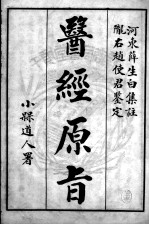 河東薛生白集註
隴右趙使君鑒定
醫經原旨
小綠道人署